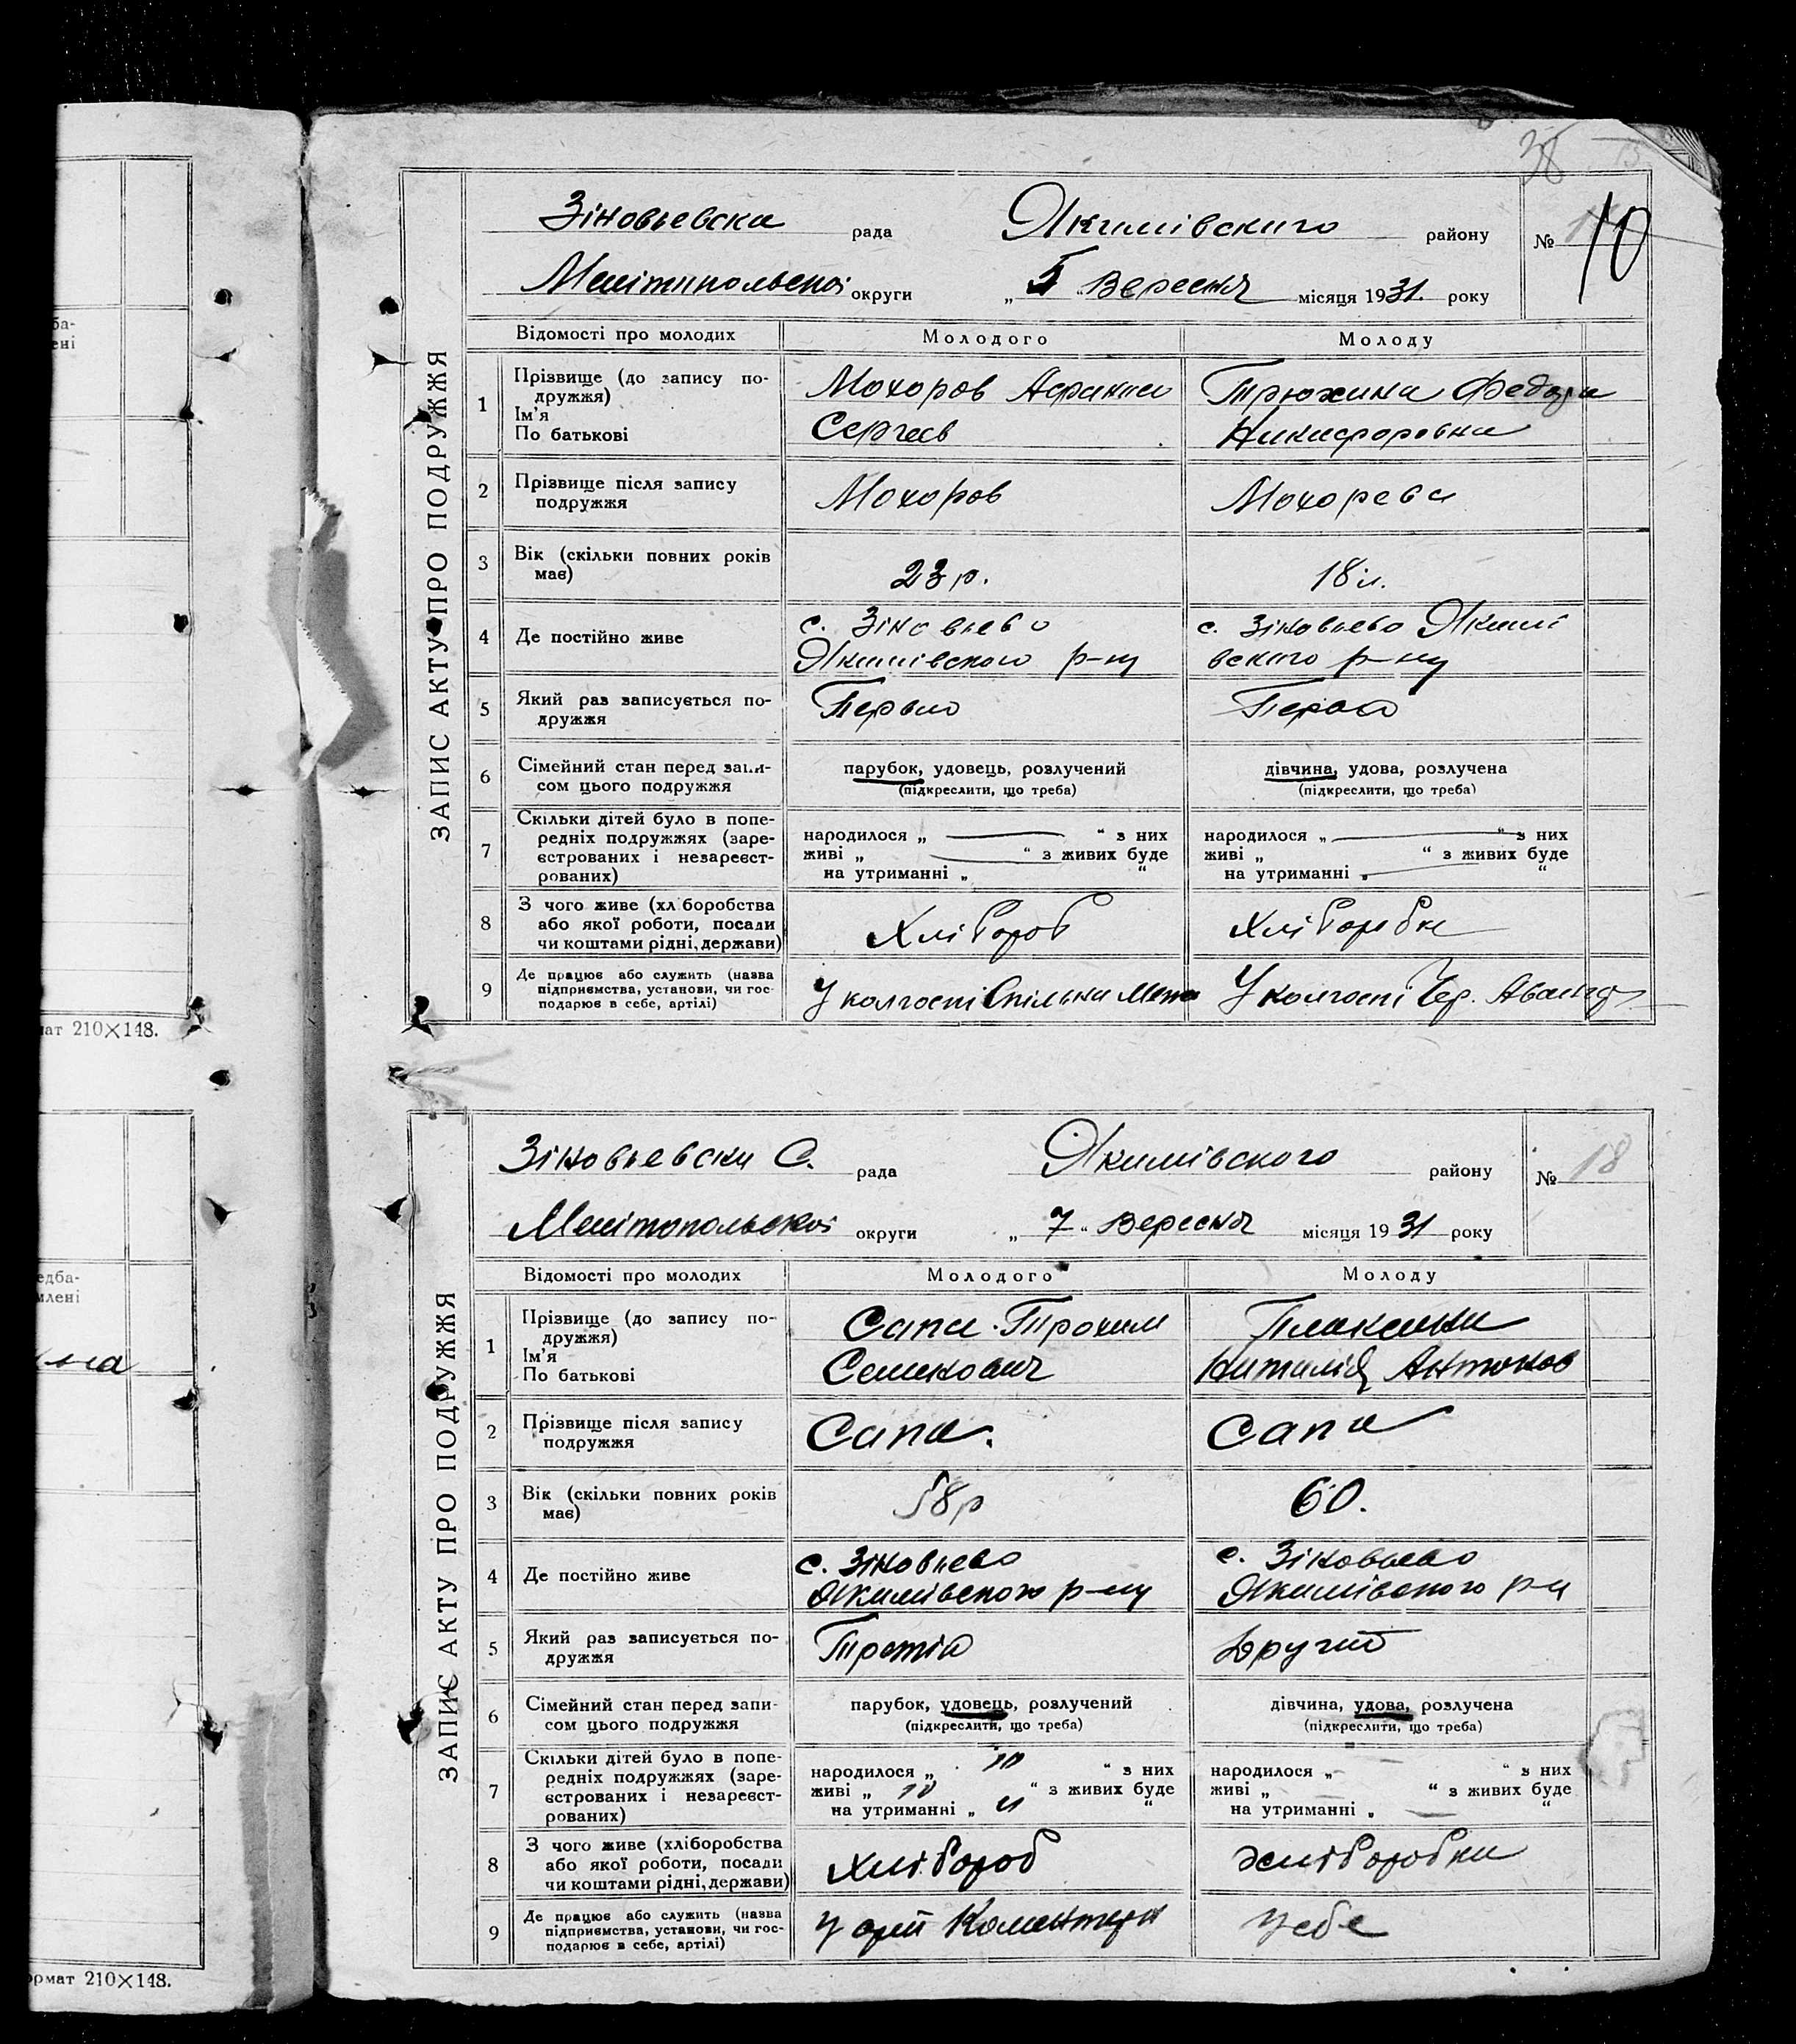 ба-
ені
мат 210×148.
едба-
млені
формат 210×148.
38
ЗАПИС АКТУ ПРО ПОДРУЖЖЯ
Зіновьевска рада Якимівского району № 10
Мелітопольскої округи „ 5 “ Вересня місяця 1931. року
Відомості про молодих Молодого Молоду
1 Прізвище (до запису по-
дружжя)
Ім'я
По батькові
Мохоров
Сергеев
Трюхина Федора
Никифоровна
2 Прізвище після запису
подружжя
Мохоров Мохорева
3 Вік (скільки повних років
має)
23 р. 18 л.
4 Де постійно живе
с. Зіновьево
Якимівского р-ну
с. Зіновьево Якимі
вского р-ну
5 Який раз записується по-
дружжя
6 Сімейний стан перед запи-
сом цього подружжя
парубок, удовець, розлучений
(підкреслити, що треба)
дівчина, удова, розлучена
(підкреслити, що треба)
7 Скільки дітей було в попе-
редніх подружжях (заре-
єстрованих і незареєст-
рованих)
народилося „ — “ з них
живі „ — “ з живих буде
на утриманні „ “
народилося „ — “ з них
живі „ “ з живих буде
на утриманні „ — “
8 З чого живе (хліборобства
або якої роботи, посади
чи коштами рідні, держави)
Хлібороб Хліборобка
9 Де працює або служить (назва
підприємства, установи, чи гос-
подарює в себе, артілі)
У колгоспі Спільна Мета
У колгоспі Чер. Авангард
ЗАПИС АКТУ ПРО ПОДРУЖЖЯ
Зіновьевска С. рада Якимівского району № 18
Мелітопольскої округи „ 7 “ Вересня місяця 1931 року
Відомості про молодих Молодого Молоду
1 Прізвище (до запису по-
дружжя)
Ім'я
По батькові
Сапа Трохим
Семенович
Наталія Антонов
2 Прізвище після запису
подружжя
Сапа. Сапа
3 Вік (скільки повних років
має)
58 р 60.
4 Де постійно живе
с. Зіновьево
Якимівского р-ну
с. Зіновьево
Якимівского р-н
5 Який раз записується по-
дружжя
Третій Другий
6 Сімейний стан перед запи-
сом цього подружжя
парубок, удовець, розлучений
(підкреслити, що треба)
дівчина, удова, розлучена
(підкреслити, що треба)
7 Скільки дітей було в попе-
редніх подружжях (заре-
єстрованих і незареєст-
рованих)
народилося „ 10 “ з них
живі „ 10 “ з живих буде
на утриманні „ “
народилося „ – “ з них
живі „ “ з живих буде
на утриманні „ — “
8 З чого живе (хліборобства
або якої роботи, посади
чи коштами рідні, держави)
Хлібороб Хліборобка
9 Де працює або служить (назва
підприємства, установи, чи гос-
подарює в себе, артілі)
У Коментерн
У себе